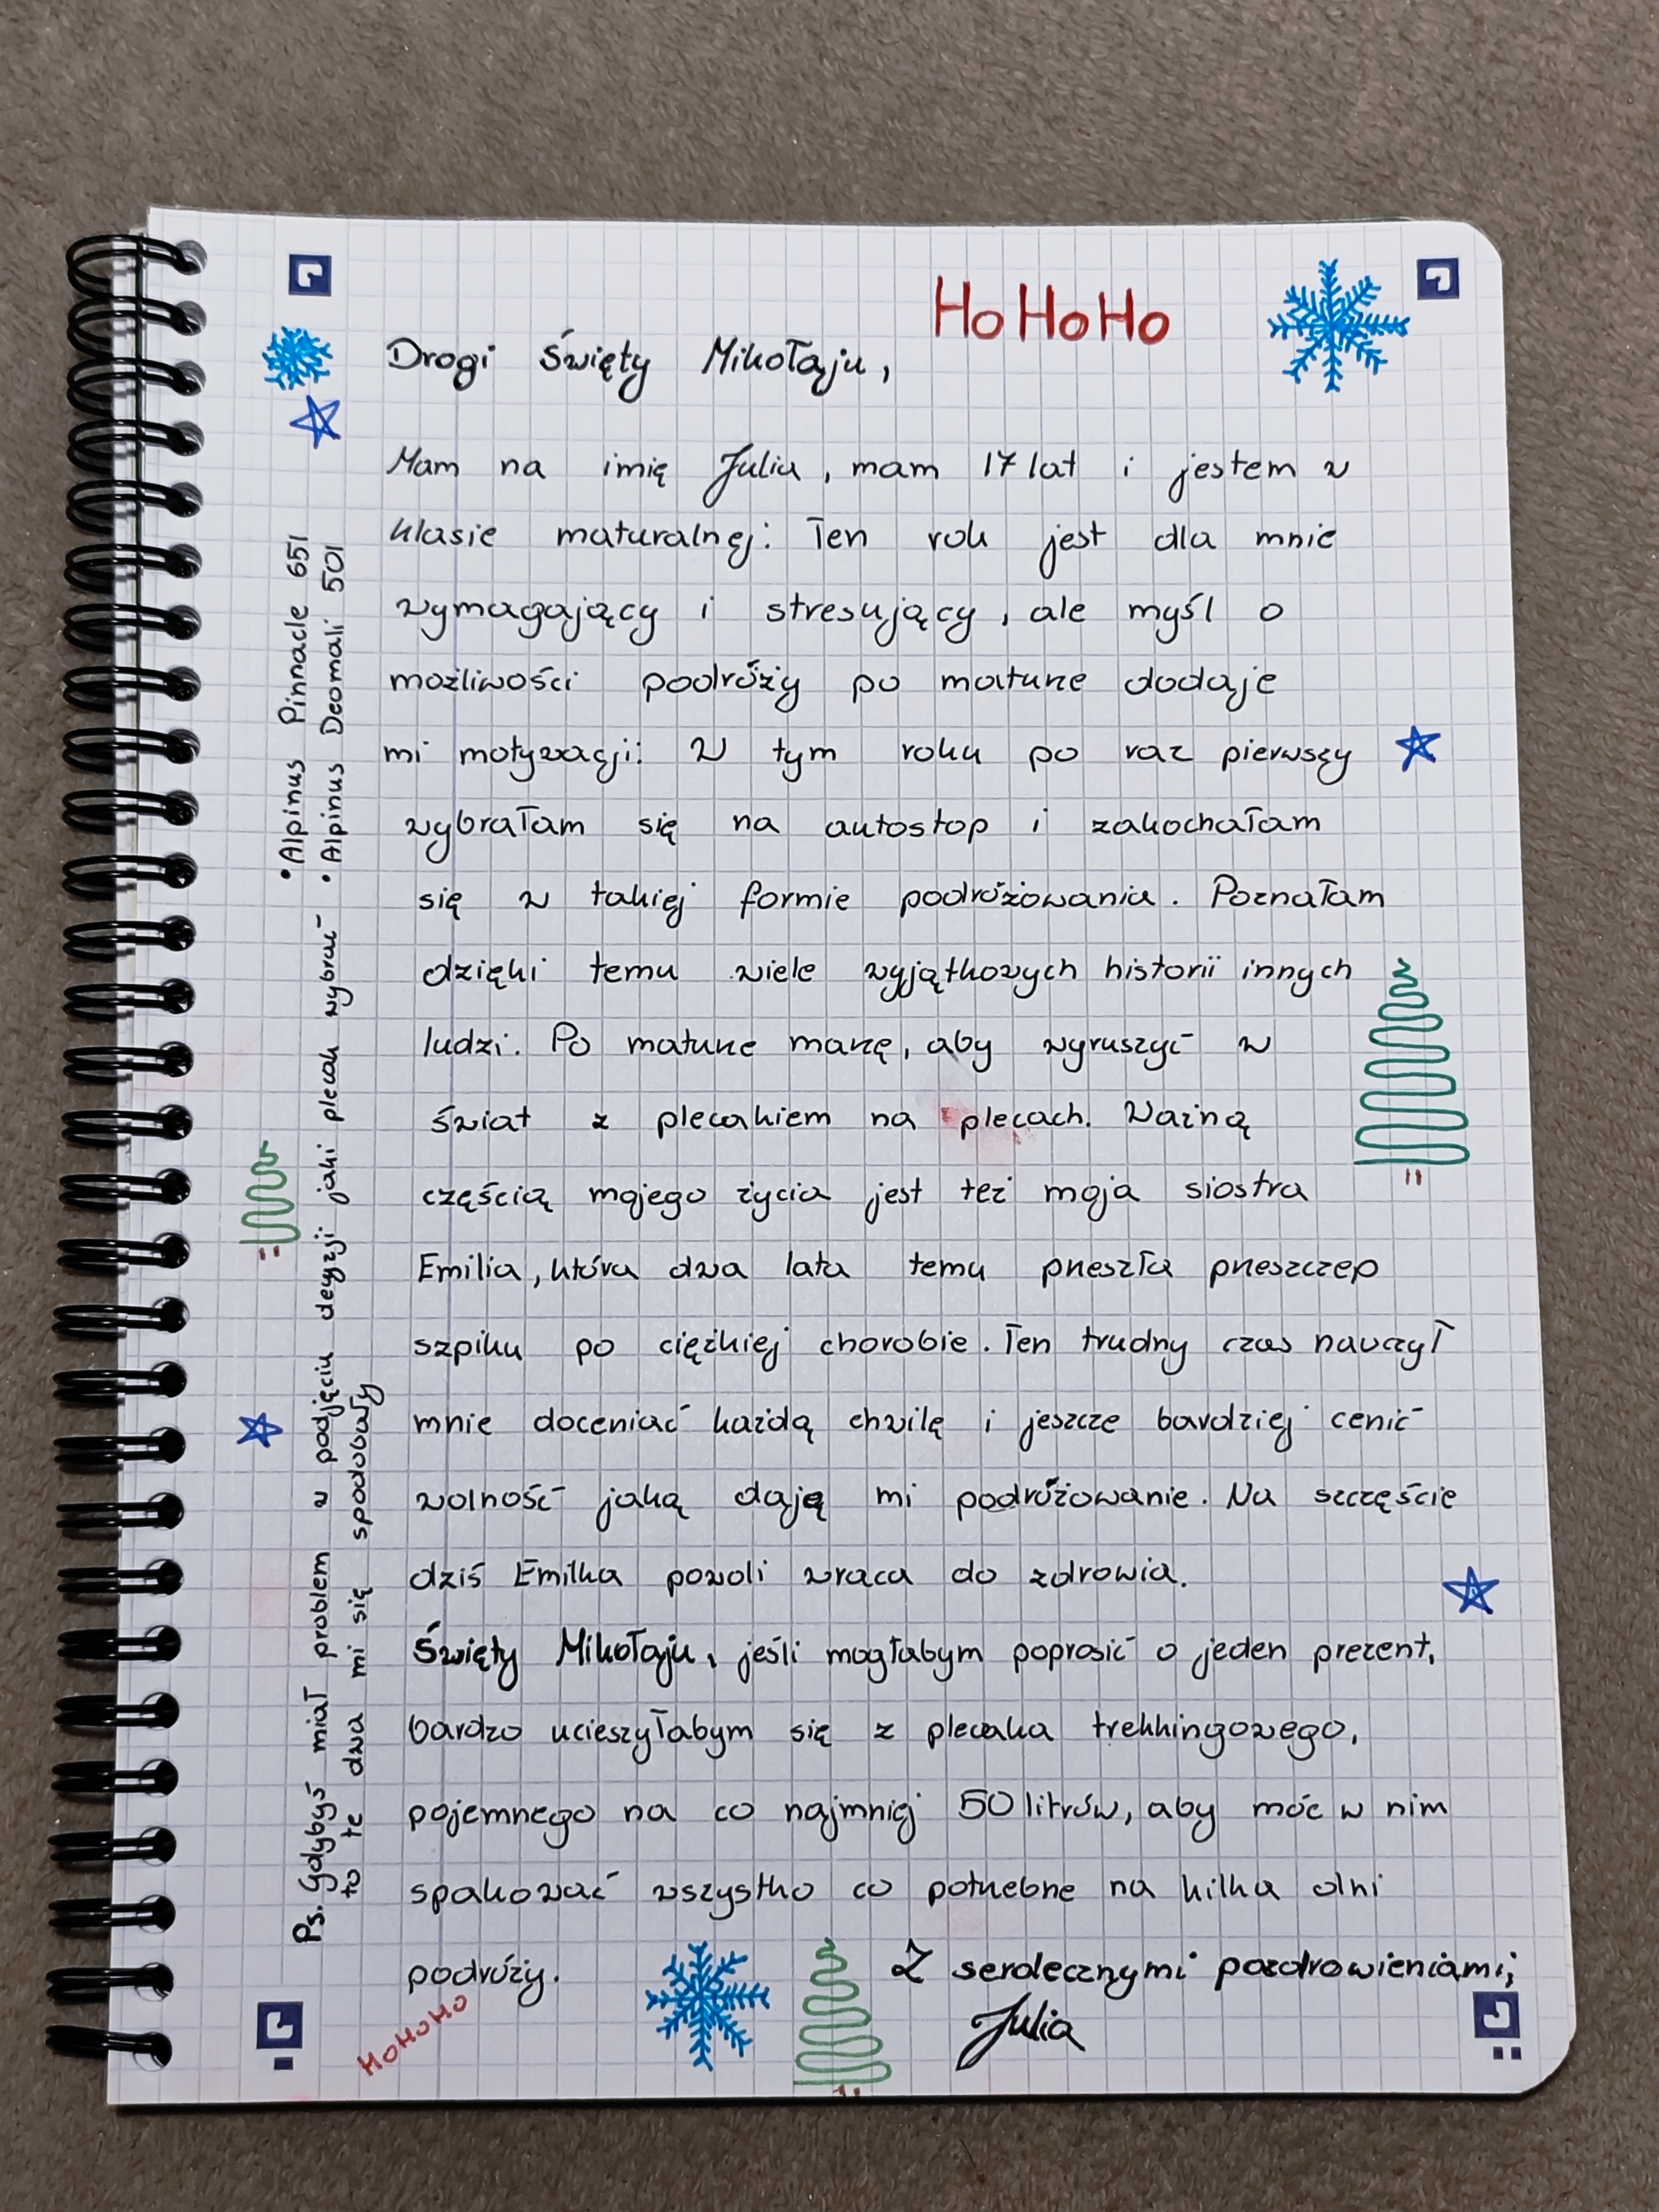 HoHoHo
Drogi Święty Mikołaju,
Mam na imię Julia, mam 17 lat i jestem w
klasie maturalnej. Ten rok jest dla mnie
wymagający i stresujący, ale myśl o
możliwości podróży po maturze dodaje
mi motywacji. W tym roku po raz pierwszy
wybrałam się na autostop i zakochałam
się w takiej formie podróżowania. Poznałam
dzięki temu wiele wyjątkowych historii innych
ludzi. Po maturze marzę, aby wyruszyć w
świat z plecakiem na plecach. Ważną
częścią mojego życia jest też moja siostra
Emilia, która dwa lata temu przeszła przeszczep
szpiku po ciężkiej chorobie. Ten trudny czas nauczył
mnie doceniać każdą chwilę i jeszcze bardziej cenić
wolność jaką dają mi podróżowanie. Na szczęście
dziś Emilka powoli wraca do zdrowia.
Święty Mikołaju, jeśli mogłabym poprosić o jeden prezent,
bardzo ucieszyłabym się z plecaka trekkingowego,
pojemnego na co najmniej 50 litrów, aby móc w nim
spakować wszystko co potrzebne na kilka dni
podróży.
Z serdecznymi pozdrowieniami,
Julia
HoHoHo
Ps. Gdybyś miał problem w podjęciu decyzji jaki plecak wybrać
to te dwa mi się spodobały
• Alpinus Pinnacle 651
• Alpinus Deomali 501